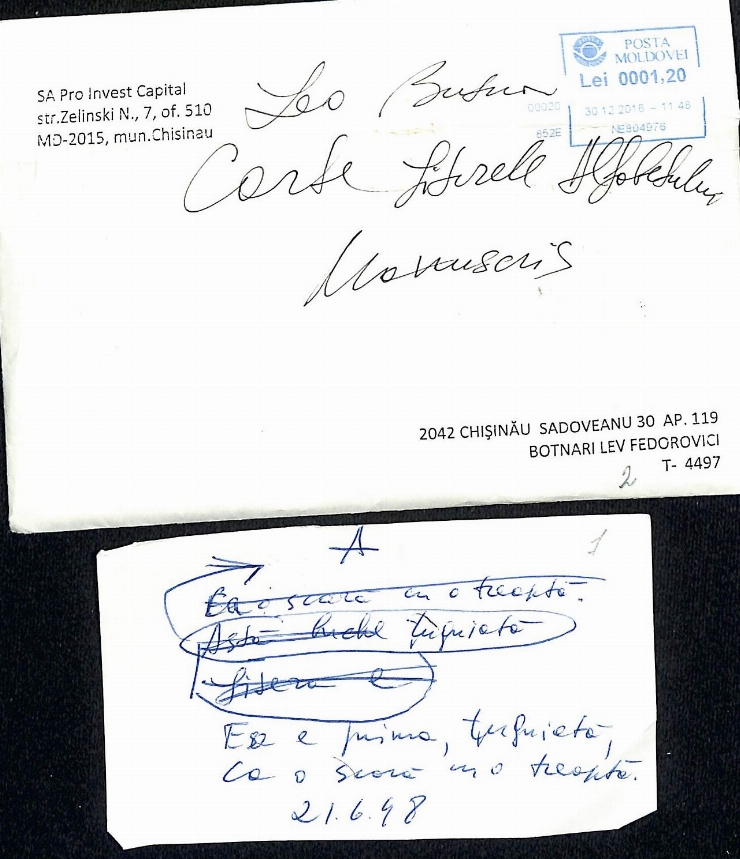 SA Pro Invest Capital
str.Zelinski N., 7, of. 510
MD-2015, mun.Chisinau
POSTA
MOLDOVEI
Lei 0001,20
00020
30 12 2016 – 11 46
852E
NE804976
Leo Butnaru
Carte Literele Alfabetului
Manuscris
2042 CHIŞINĂU SADOVEANU 30 AP. 119
BOTNARI LEV FEDOROVICI
T- 4497
2
A
1
Ea o scară cu o treaptă.
Astă buche țuguiată
Litera e
Ea e prima, țuguiată,
Ca o scară cu o treaptă.
21.6.98